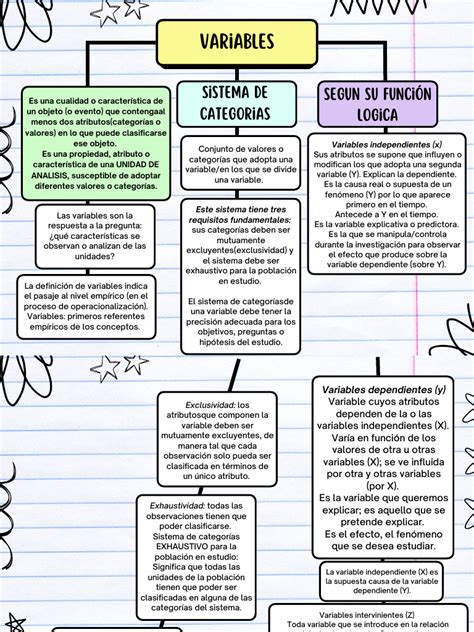 VARIABLES
Es una cualidad o característica de
un objeto (o evento) que contengaal
menos dos atributos(categorías o
valores) en lo que puede clasificarse
ese objeto.
Es una propiedad, atributo o
característica de una UNIDAD DE
ANALISIS, susceptible de adoptar
diferentes valores o categorías.
Las variables son la
respuesta a la pregunta:
¿qué características se
observan o analizan de las
unidades?
La definición de variables indica
el pasaje al nivel empírico (en el
proceso de operacionalización).
Variables: primeros referentes
empíricos de los conceptos.
SISTEMA DE
CATEGORIAS
Conjunto de valores o
categorías que adopta una
variable/en los que se divide
una variable.
Este sistema tiene tres
requisitos fundamentales:
sus categorías deben ser
mutuamente
excluyentes(exclusividad) y
el sistema debe ser
exhaustivo para la población
en estudio.
El sistema de categoríasde
una variable debe tener la
precisión adecuada para los
objetivos, preguntas o
hipótesis del estudio.
SEGUN SU FUNCIÓN
LOGICA
Variables independientes (x)
Sus atributos se supone que influyen o
modifican los que adopta una segunda
variable (Y). Explican la dependiente.
Es la causa real o supuesta de un
fenómeno (Y) por lo que aparece
primero en el tiempo.
Antecede a Y en el tiempo.
Es la variable explicativa o predictora.
Es la que se manipula/controla
durante la investigación para observar
el efecto que produce sobre la
variable dependiente (sobre Y).
Exclusividad: los
atributosque componen la
variable deben ser
mutuamente excluyentes, de
manera tal que cada
observación solo pueda ser
clasificada en términos de
un único atributo.
Exhaustividad: todas las
observaciones tienen que
poder clasificarse.
Sistema de categorías
EXHAUSTIVO para la
población en estudio:
Significa que todas las
unidades de la población
tienen que poder ser
clasificadas en alguna de las
categorías del sistema.
Variables dependientes (y)
Variable cuyos atributos
dependen de la o las
variables independientes (X).
Varía en función de los
valores de otra u otras
variables (X); se ve influida
por otra y otras variables
(por X).
Es la variable que queremos
explicar; es aquello que se
pretende explicar.
Es el efecto, el fenómeno
que se desea estudiar.
La variable independiente (X) es
la supuesta causa de la variable
dependiente (Y).
Variables intervinientes (Z)
Toda variable que se introduce en la relación